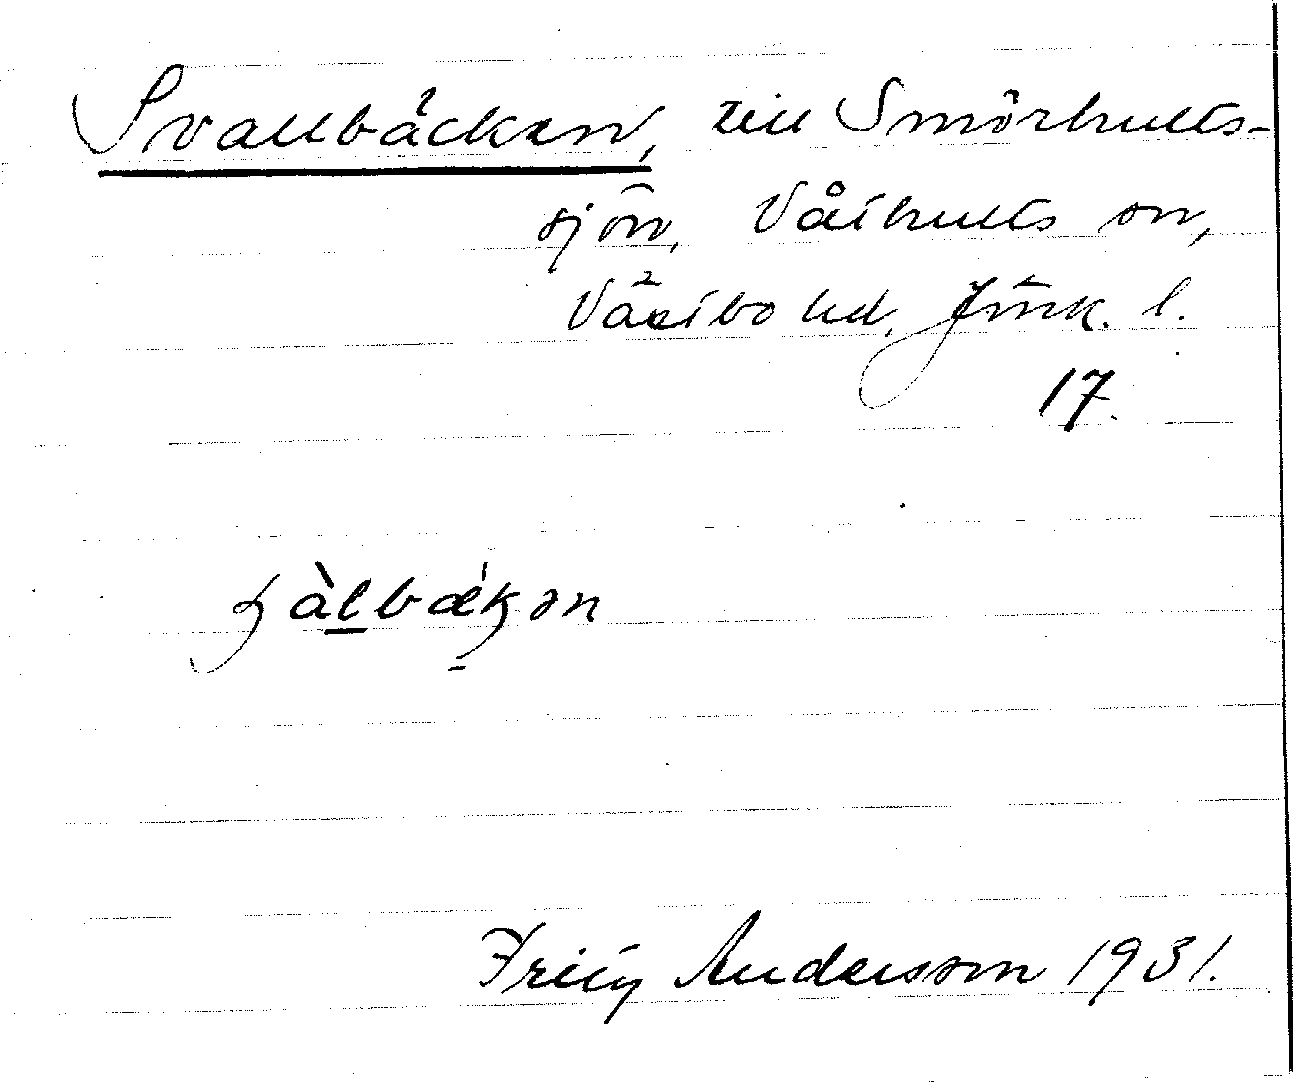 Svallbäcken, till Smörhults-
sjön, Våthults sn,
Västbo hd, Jönk. l.
17.
Fritz Andersson 1931.